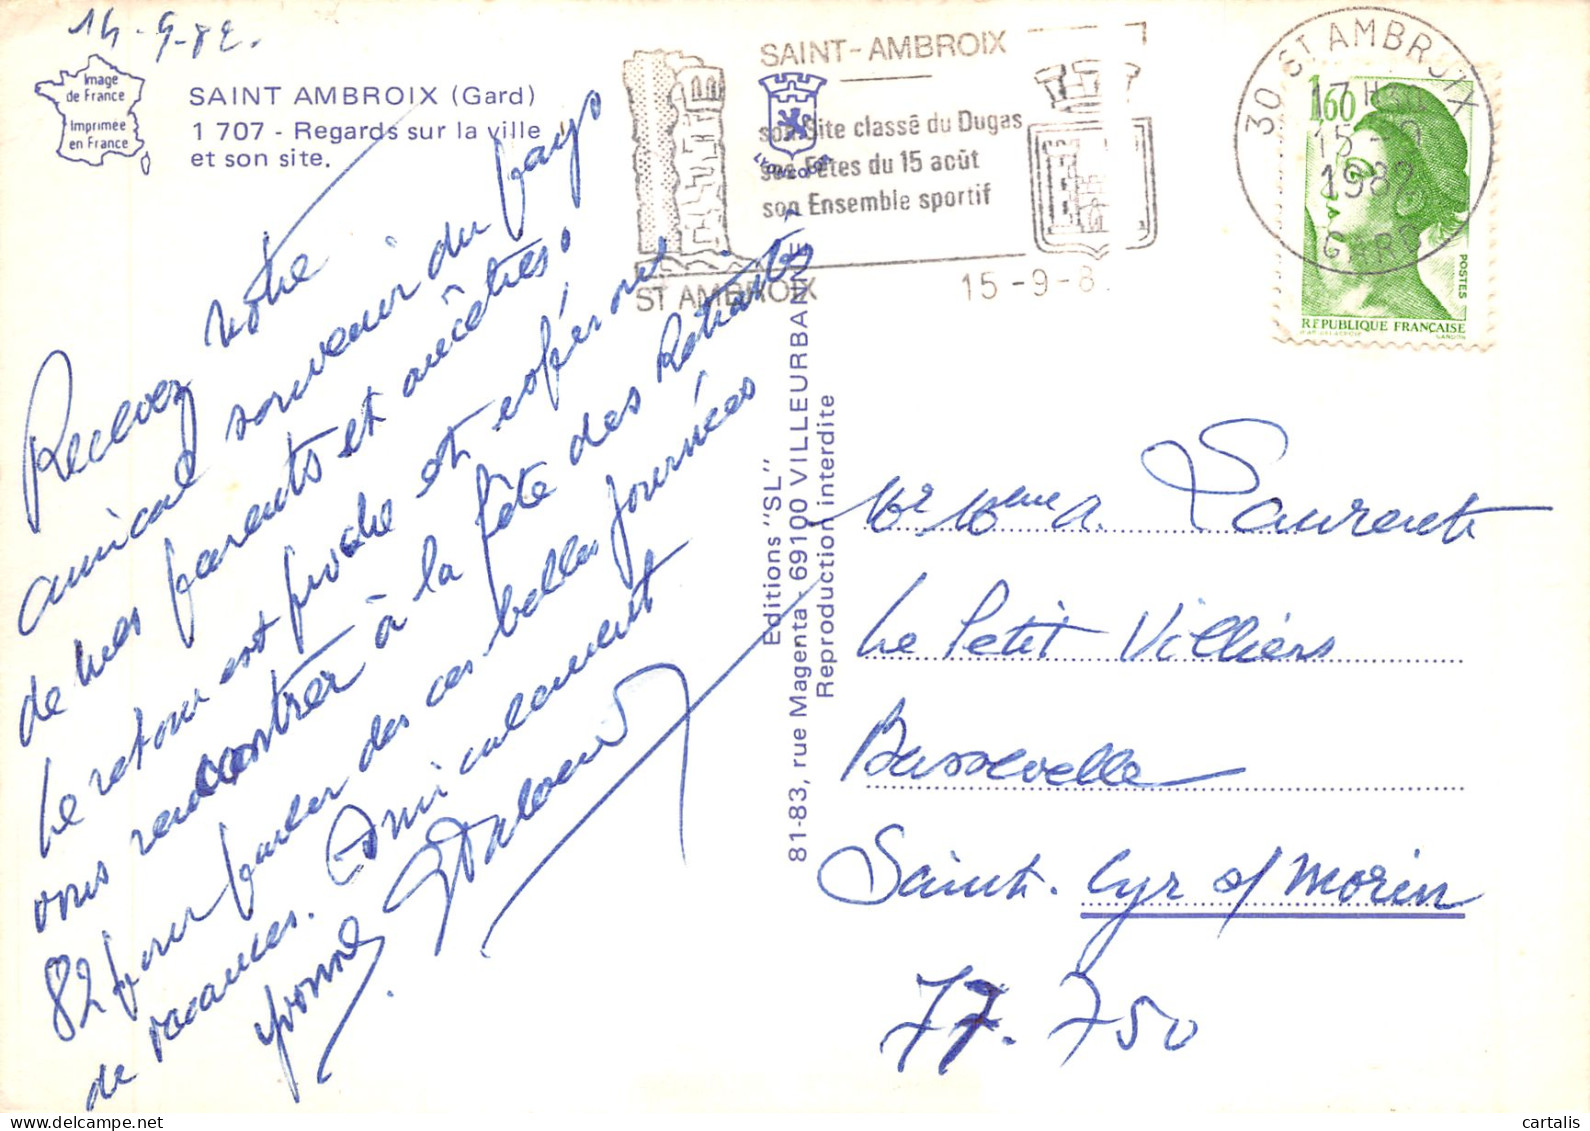 14-9-82.
Image
de France
Imprimée
en France
SAINT AMBROIX (Gard)
1 707 - Regards sur la ville
et son site.
Recevez votre
amical souvenir du pays
de mes parents et ancêtres.
Le retour est proche et espérant
vous rencontrer à la fête des Retraités
82 pour parler des ces belles journées
de vacances. Amicalement
Yvonne
SAINT-AMBROIX
son Site classé du Dugas
ses Fêtes du 15 août
son Ensemble sportif
ST AMBROIX
15-9-8
30 ST AMBROIX
17 H
15-9
1982
GARD
1,60
POSTES
REPUBLIQUE FRANÇAISE
Editions "SL"
81-83, rue Magenta - 69100 VILLEURBANNE
Reproduction interdite
Mr Mme A. Laurent
Le Petit Villiers
Bassevelle
Saint. Cyr s/ Morin
77.750
cartalis